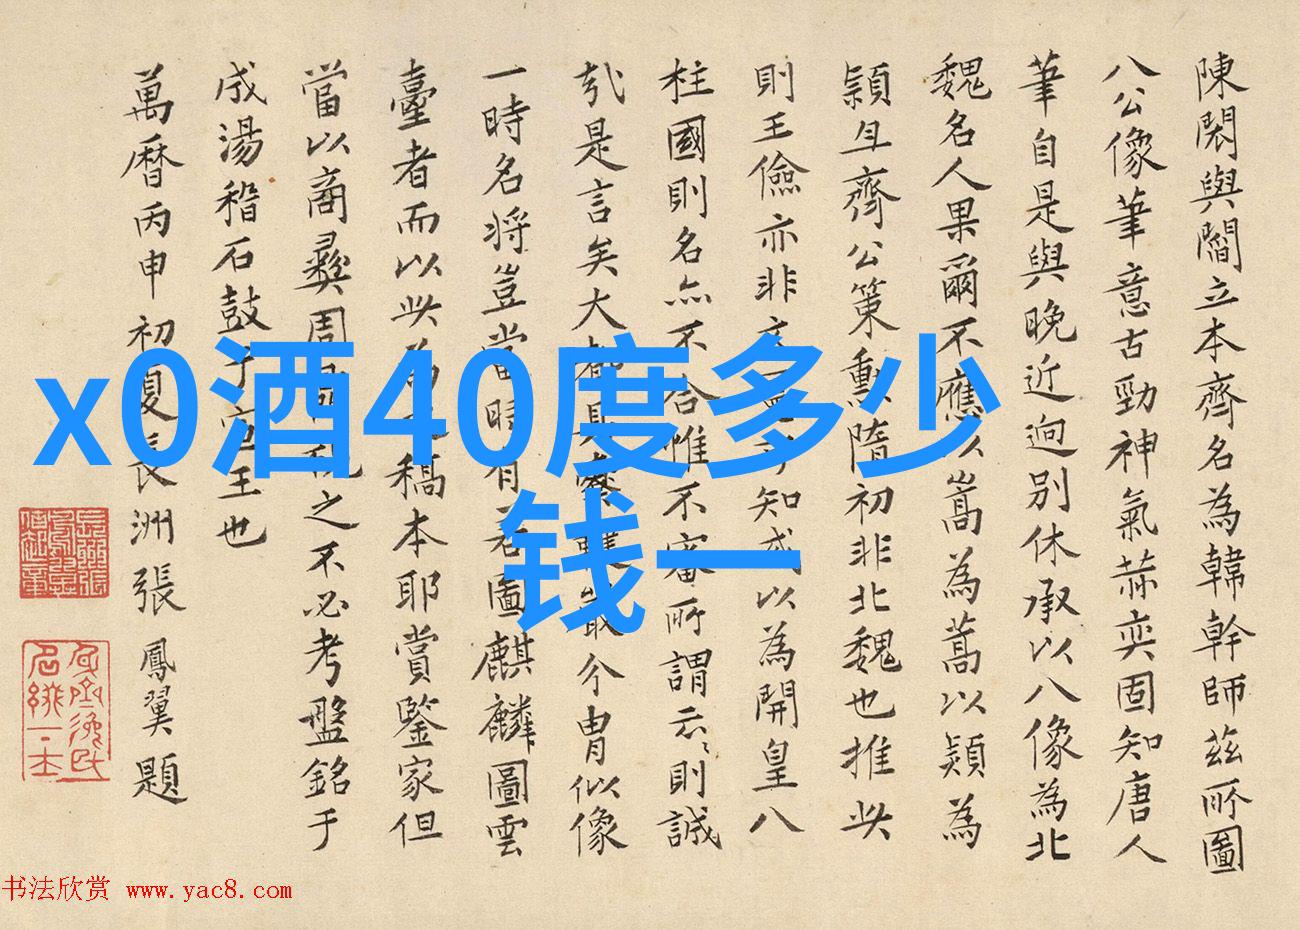 陳閎與閻立本齊名為韓幹師茲所圖
八公像筆意古勁神氣赫奕固知唐人
筆自是與晚近迥别休承以八像為北
魏名人果爾不應以嵩為蒿以熲為
頴且齊公策勳隋初非北魏也推此
則王儉亦非
知或以為開皇八
柱國則名亦不合惟不審所謂云云則誠
哉是言矣大都具
最今冑似像
一時名将豈當時有
圖麒麟圖雲
臺者而以此為
稿本耶賞鑒家但
當以商彝周
之不必考盤銘于
成湯稽石鼓于宣王也
萬曆丙申初夏長洲張鳳翼題
x0酒40度多少
钱一
书法欣赏 www.yac8.com